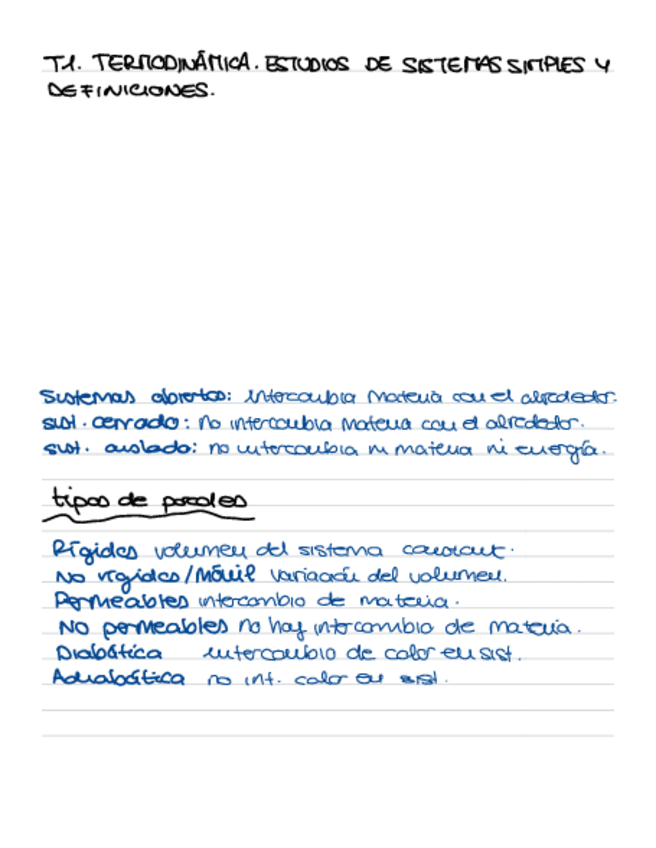 T1. TERMODINÁMICA. ESTUDIOS DE SISTEMAS SIMPLES Y
DEFINICIONES.
Sistemas abiertos: intercambia materia con el alrededor.
sist. cerrado: no intercambia materia con el alrededor.
sist. aislado: no intercambia ni materia ni energía.
tipos de paredes
Rígidas volumen del sistema constant.
No rígidas/Móvil variación del volumen.
Permeables intercambio de materia.
No permeables no hay intercambio de materia.
Diabática intercambio de calor en sist.
Adiabática no int. calor en sist.